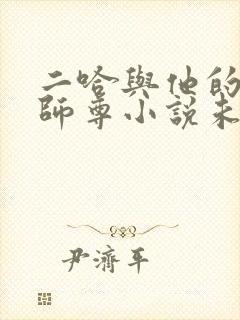 二哈與他的
師尊小說未
尹濟平